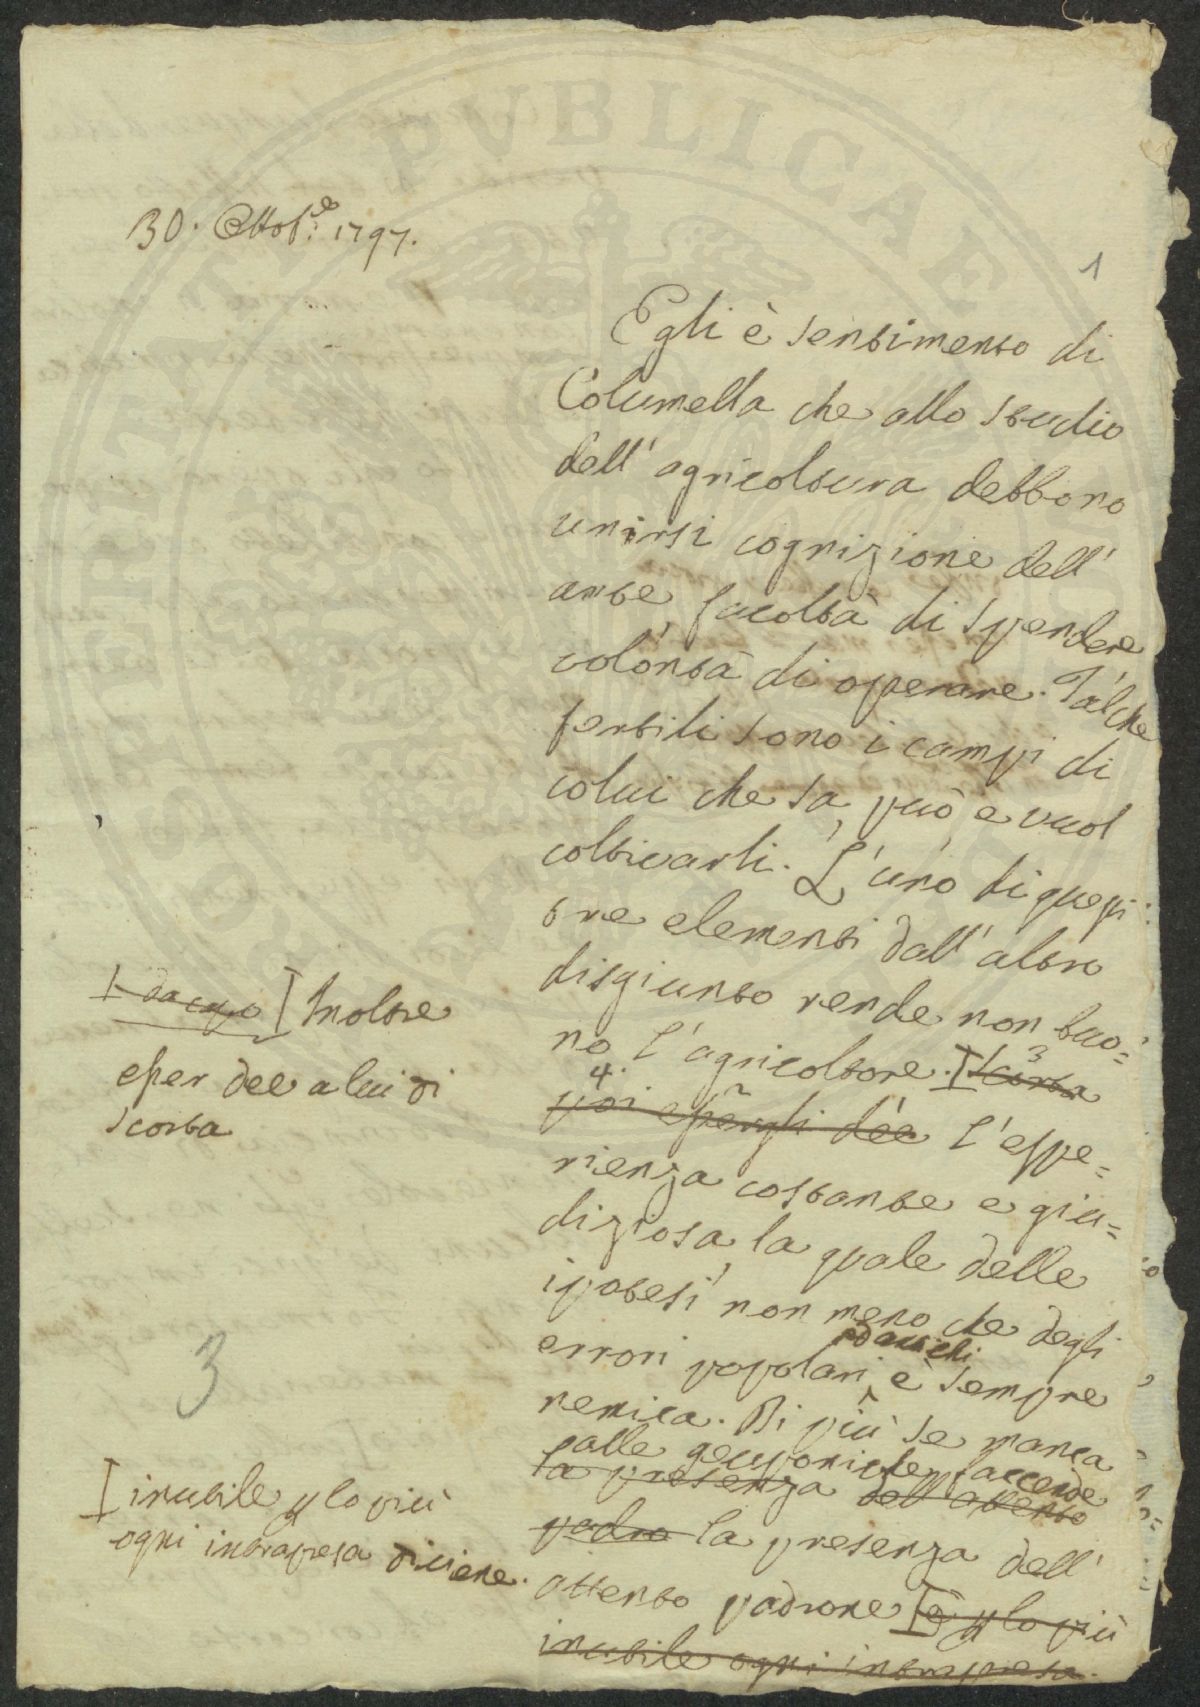 30. Ottob.re 1797.
1
Egli è sentimento di
Columella che allo studio
dell' agricoltura debbono
unirsi cognizione dell'
arte, facoltà di spendere
volontà di operare. Talche
fertili sono i campi di
colui che sa, può e vuol
coltivarli. L'uno di questi
tre elementi dall' altro
disgiunto rende non buo=
no l'agricoltore. I Scorta
poi esser gli dèe l'espe=
rienza costante e giu=
diziosa, la quale delle
ipotesi non meno che degli
errori popolari ed antichi è sempre
nemica. Di più se manca
alle geuponiche faccende
la presenza dell'attento
padro la presenza dell'
attento padrone I è p lo più
inutile ogni intrapresa.
I da capo I Inoltre
esser dee a lui di
scorta
3
I inutile p lo più
ogni intrapresa diviene.
PVBLICAE